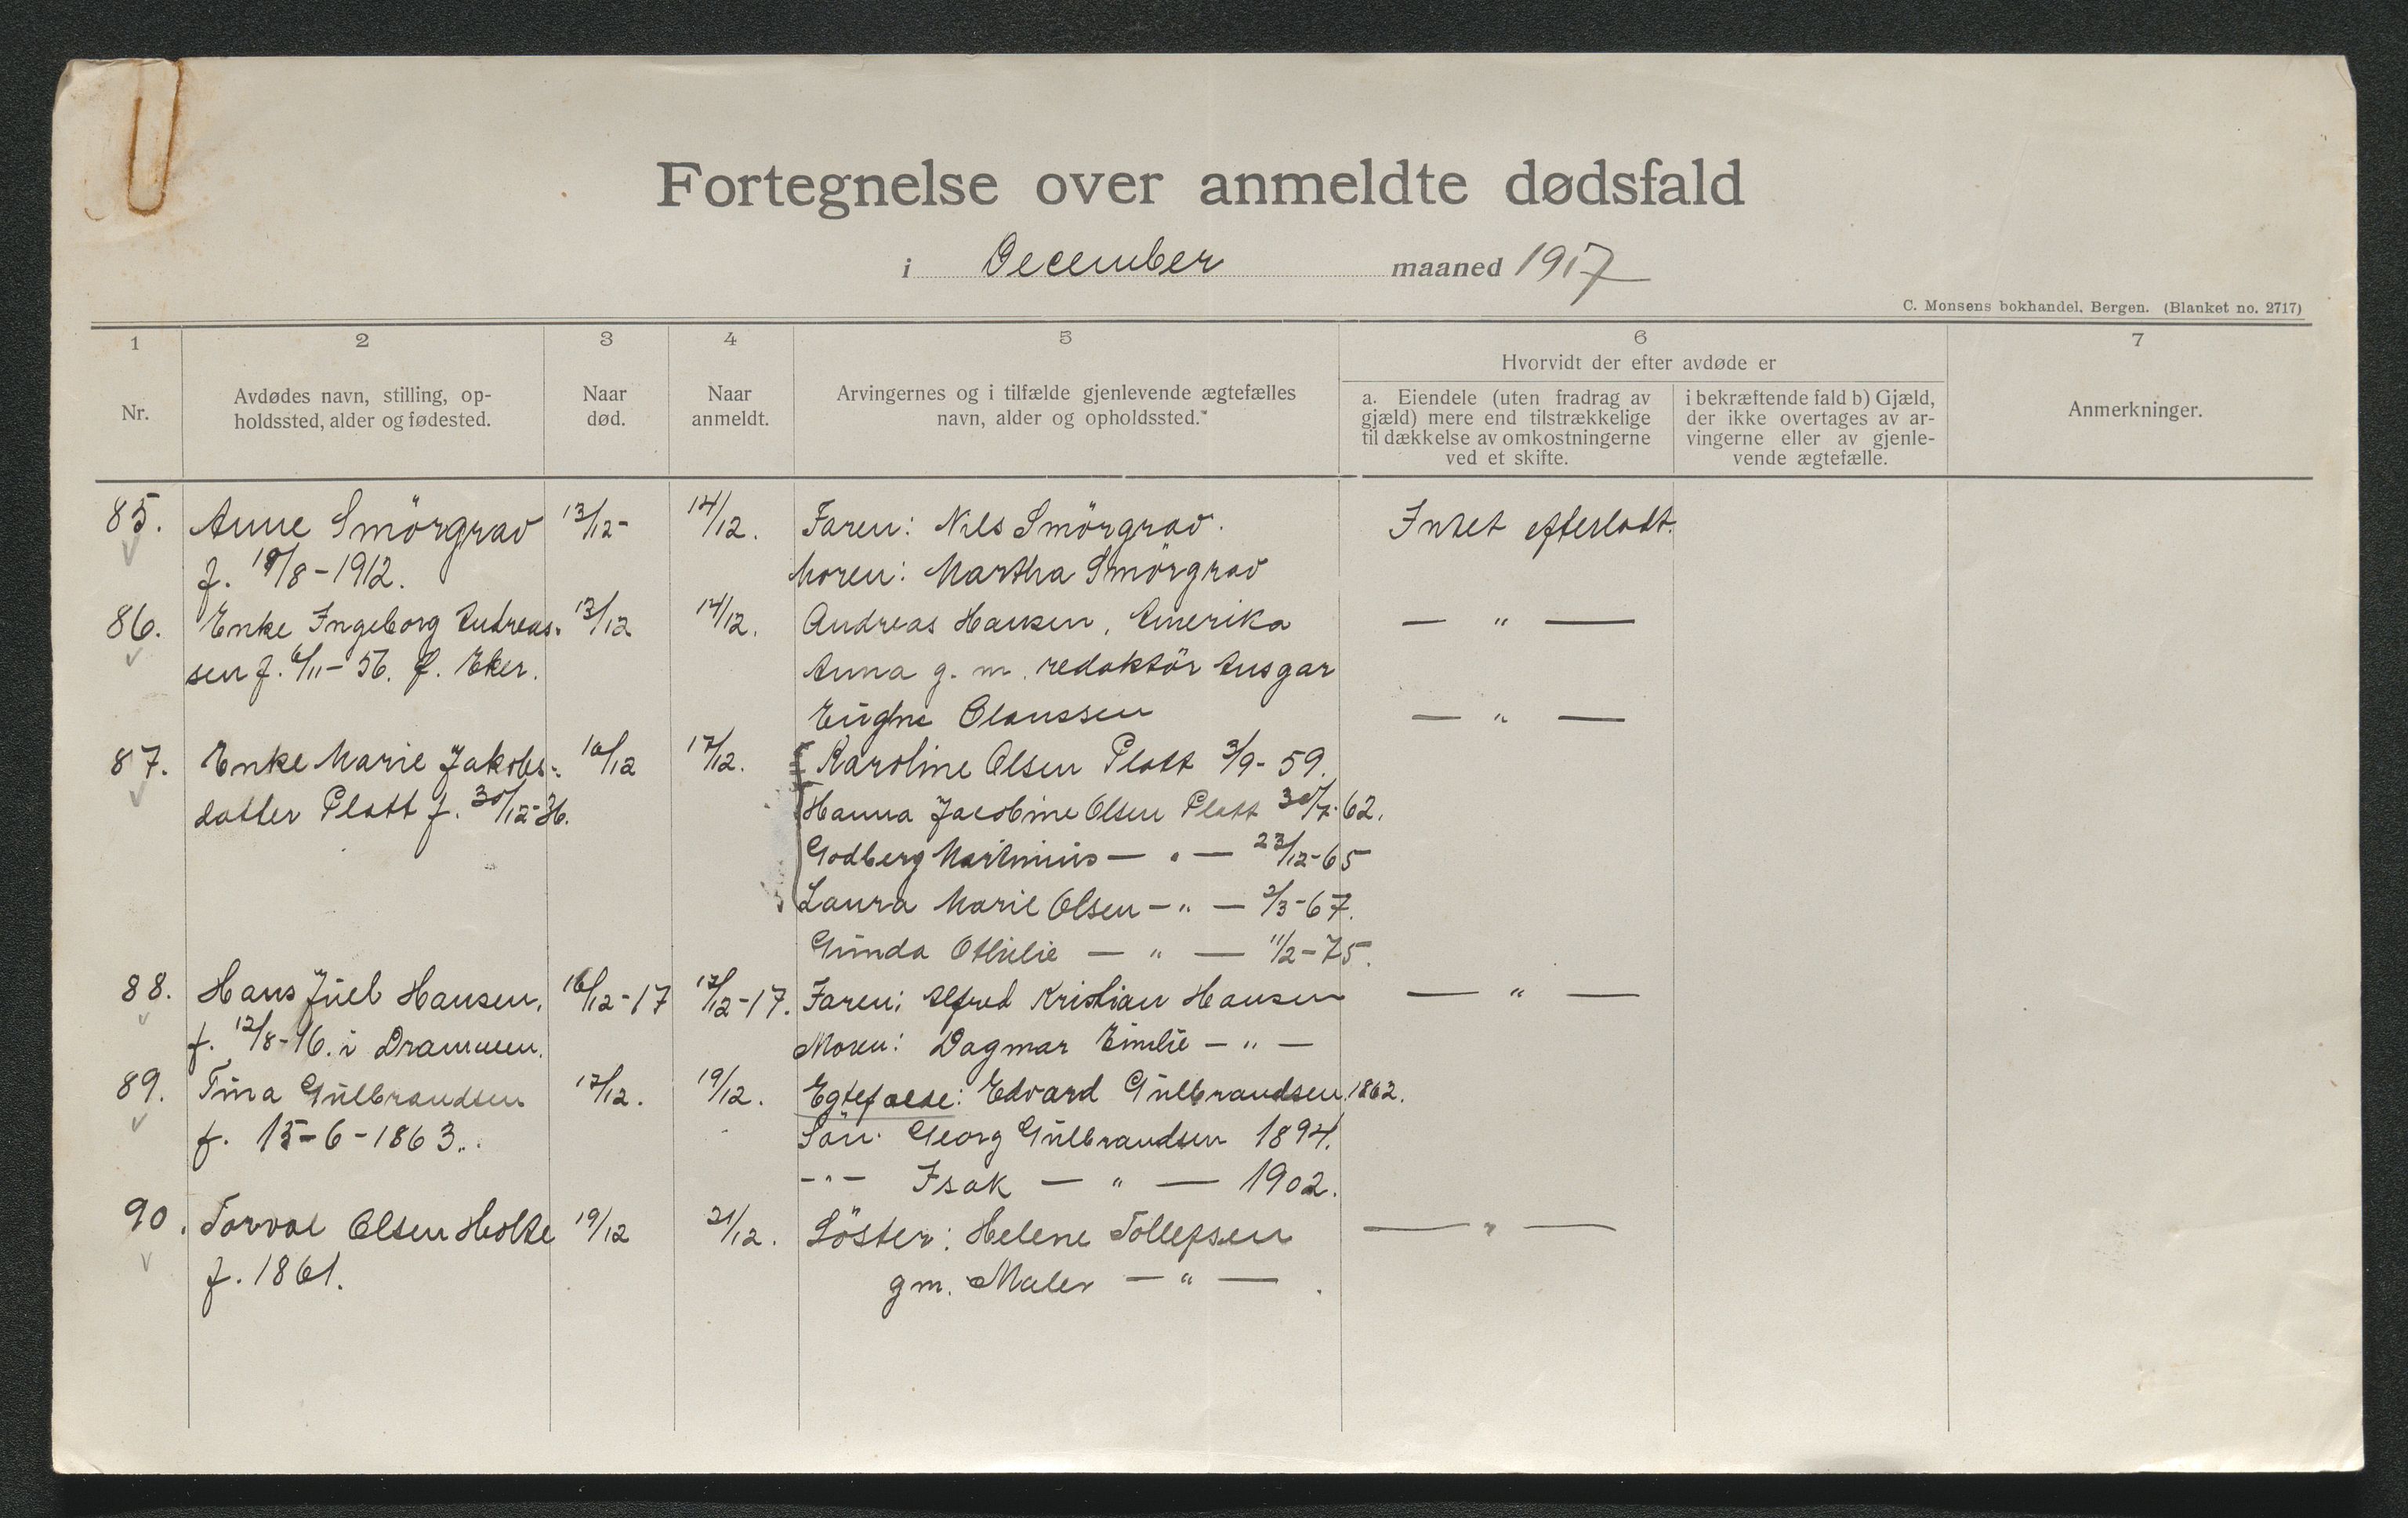 Fortegnelse over anmeldte dødsfald
i December maaned 1917
C. Monsens bokhandel, Bergen. (Blanket no. 2717)
1 2 3 4 5 6 7
Nr.
Avdødes navn, stilling, op-
holdssted, alder og fødested.
Naar
død.
Naar
anmeldt.
Arvingernes og i tilfælde gjenlevende ægtefælles
navn, alder og opholdssted.
Hvorvidt der efter avdøde er
a. Eiendele (uten fradrag av
gjæld) mere end tilstrækkelige
til dækkelse av omkostningerne
ved et skifte.
i bekræftende fald b) Gjæld,
der ikke overtages av ar-
vingerne eller av gjenle-
vende ægtefælle.
Anmerkninger.
85. Anne Smörgrav 13/12- 14/12. Faren: Nils Smörgrav. Intet efterladt.
f. /8-1912. Moren: Martha Smörgrav
86. Enke Ingeborg Andreas- 13/12 14/12. Andreas Hansen, Amerika — " —
sen f. 6/11-56. f. Eker. Anna g. m. redaktör Ansgar
Eugène Olaussen — " —
87. Enke Marie Jakobs- 16/12 17/12. Karoline Olsen Platt 3/9-59.
datter Platt f. 30/12-36. Hanna Jacobine Olsen Platt 30/7-62.
Godberg Martinius — " — 23/12-65
Laura Marie Olsen — " — 2/3-67.
Gunda Othilie — " — 11/2-75.
88. Hans Juel Hansen, 16/12-17 17/12-17. Faren: Alfred Kristian Hansen — " —
f. 12/8-16. i Drammen. Moren: Dagmar Emilie — " —
89. Tina Gulbrandsen 17/12. 19/12. Egtefælle: Edvard Gulbrandsen 1862.
f. 15-6-1863. Sön: Georg Gulbrandsen 1894.
-"- Isak — " — 1902.
90. Torval Olsen Holte 19/12 21/12. Söster: Helene Tollefsen — " —
f. 1861. gm. Maler — " —